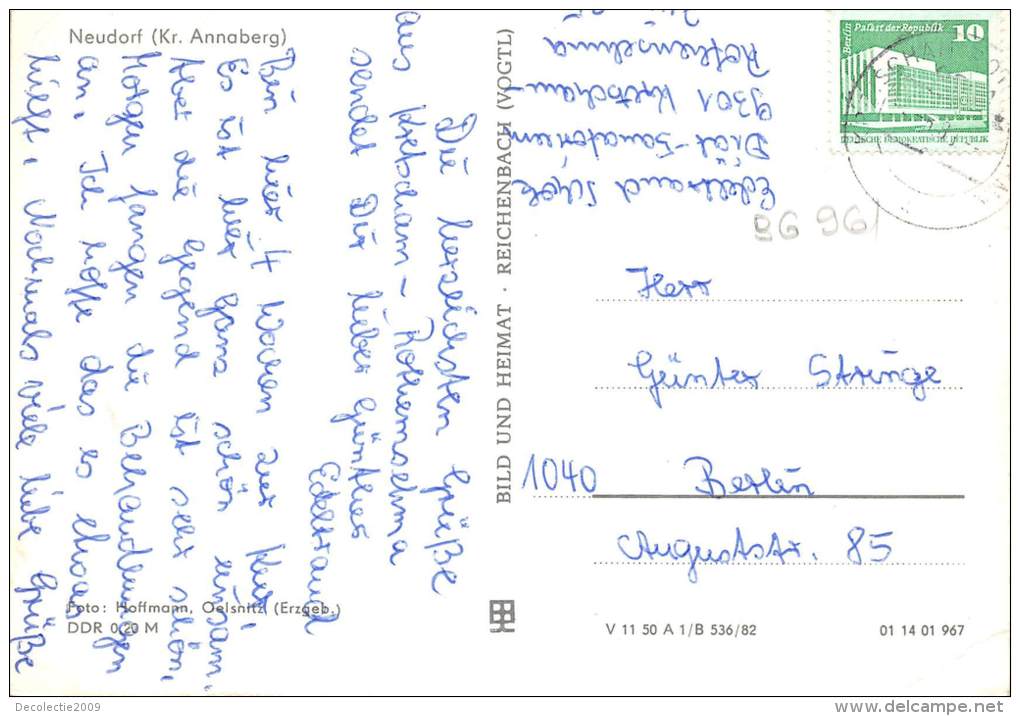 Neudorf (Kr. Annaberg)
Die herzlichsten Grüße
aus Kretscham-Rothensehma
sendet Dir lieber Günther
Edeltraud
Bin hier 4 Wochen zur Kur.
Es ist hier ganz schön einsam,
Aber die Gegend ist sehr schön,
Morgen fangen die Behandlungen
an. Ich hoffe das es etwas
hilft. Nochmals viele liebe Grüße
Foto: Hoffmann, Oelsnitz (Erzgeb.)
DDR 0,20 M
BILD UND HEIMAT · REICHENBACH (VOGTL)
Edeltraud
Diät-Sanatorium
9301 Kretscham-
Rothensehma
Berlin Palast der Republik 10
DEUTSCHE DEMOKRATISCHE REPUBLIK
Herr
Günter Strünge
1040 Berlin
Auguststr. 85
V 11 50 A 1/B 536/82
01 14 01 967
Decolectie2009